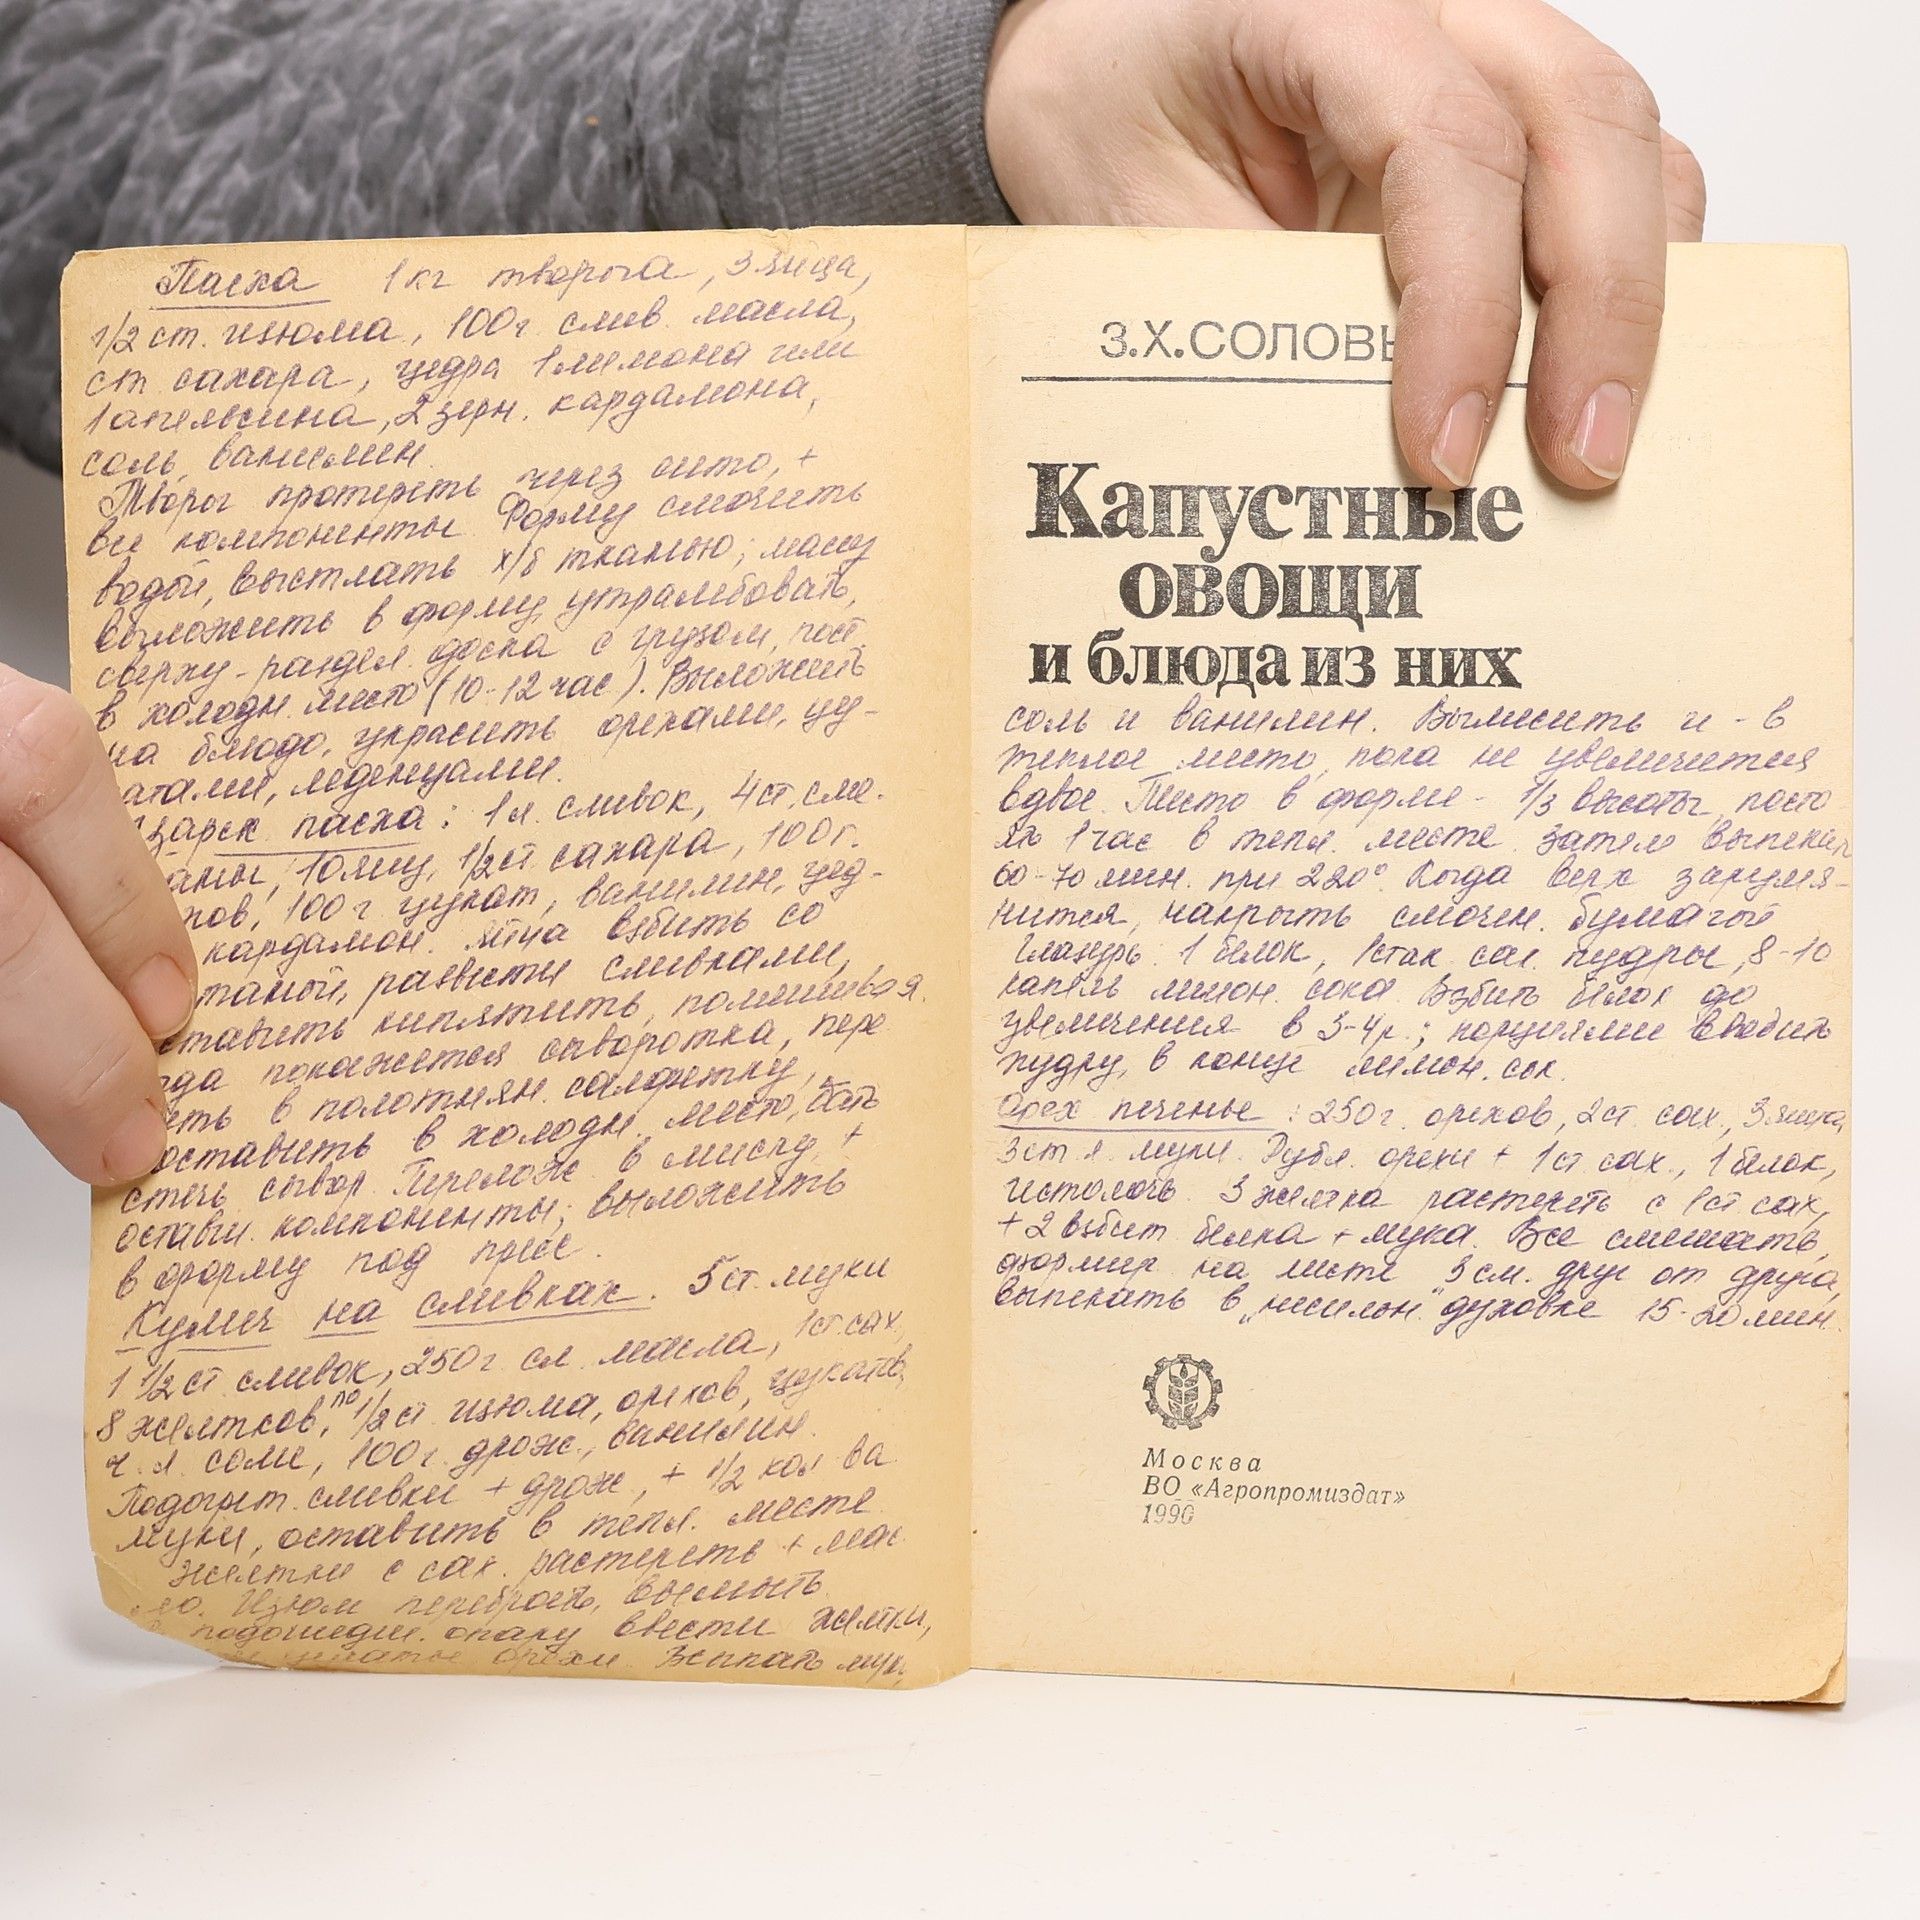 Пасха 1 кг творога, 3 яйца,
1/2 ст. изюма, 100 г. слив. масла,
ст. сахара, цедра 1 лимона или
1 апельсина, 2 зерн. кардамона,
соль, ванилин.
Творог протереть через сито, +
все компоненты. Форму смочить
водой, выстлать х/б тканью; массу
выложить в форму, утрамбовать,
сверху - раздел. доска с грузом, пост.
в холодн. место (10-12 час). Выложить
на блюдо, украсить орехами, цу-
катами, леденцами.
Царск. пасха: 1 л. сливок, 4 ст. сме-
таны, 10 яиц, 1/2 ст. сахара, 100 г.
хов, 100 г. цукат, ванилин, цед-
кардамон. Яйца взбить со
таной, развести сливками,
ставить кипятить, помешивая.
гда покажется сыворотка, пере
ить в полотнян. салфетку,
оставить в холодн. место, дать
стечь сывор. Перелож. в миску, +
оставш. компоненты; выложить
в форму под прес.
Кулич на сливках. 5 ст. муки
1 1/2 ст. сливок, 250 г сл. масла, 1 ст. сах,
8 желтков, по 1/2 ст. изюма, орехов, цукатов,
ч. л. соли, 100 г. дрож., ванилин.
Подогрет. сливки + дрож., + 1/2 кол-ва
муки, оставить в тепл. месте.
Желтки с сах. растереть + мас
ло. Изюм перебрать, вымыть.
подошедш. опару ввести желтки,
орехи. Всыпать муку,
З.Х.СОЛОВЬ
Капустные
овощи
и блюда из них
соль и ванилин. Вымесить и - в
теплое место, пока не увеличится
вдвое. Тесто в форме - 1/3 высоты, посто
ять 1 час в тепл. месте затем выпекат
60-70 мин. при 220°. Когда верх заруmя-
нится, накрыть смочен. бумагой
Глазурь: 1 белок, 1 стак. сах. пудры, 8-10
капель лимон. сока. Взбить белок до
увеличения в 3-4 р.; порциями вводить
пудру, в конце лимон. сок.
Орех. печенье: 250 г. орехов, 2 ст. сах, 3 яйца,
3 ст. л. муки. Рубл. орехи + 1 ст. сах., 1 белок,
истолочь. 3 желтка растереть с 1 ст. сах,
+ 2 взбит. белка + мука. Все смешать,
формир. на листе 3 см. друг от друга,
выпекать в „несильн." духовке 15-20 мин.
Москва
ВО «Агропромиздат»
1990